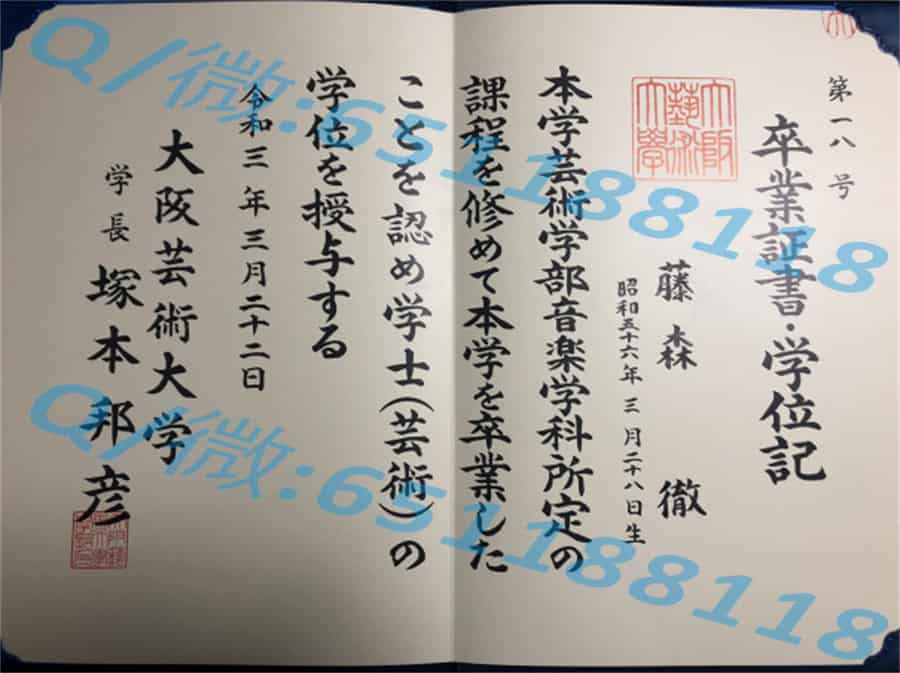 第一八号
卒業証書・学位記
大阪
藝術
大學
藤森 徹
昭和五十六年三月二十八日生
本学芸術学部音楽学科所定の
課程を修めて本学を卒業した
ことを認め学士(芸術)の
学位を授与する
令和三年三月二十二日
大阪芸術大学
学長 塚本邦彦
Q/微:651188118
Q/微:651188118